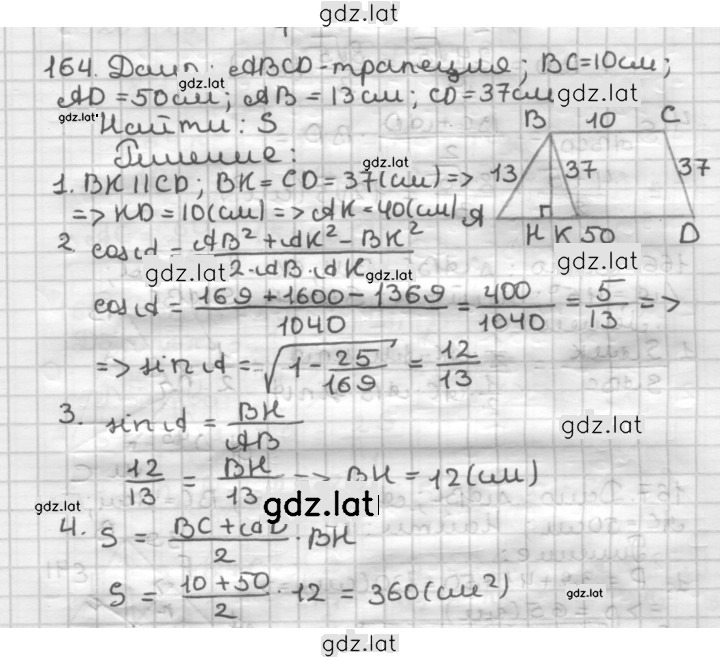 gdz.lat
164. Дано: ABCD-трапеция; BC=10см; gdz.lat
AD=50см; AB=13см; CD=37см gdz.lat
gdz.lat Найти: S
B 10 C
Решение: gdz.lat
1. BK||CD; BK=CD=37(см)=> 13 37 37
=> KD=10(см)=> AK=40(см) A H K 50 D
2 cos A = AB²+AK²-BK² / 2·AB·AK
gdz.lat gdz.lat gdz.lat
cos A = 169+1600-1369 / 1040 = 400 / 1040 = 5 / 13 =>
=> sin A = √1-25/169 = 12/13
3. sin A = BH / AB gdz.lat
12/13 = BH/13 => BH=12(см)
gdz.lat gdz.lat
4. S = BC+AD / 2 · BH
S = 10+50 / 2 · 12 = 360(см²) gdz.lat
gdz.lat